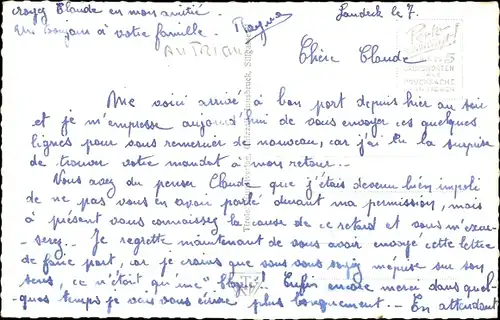 croyez Claude en mon amitié.
Un bonjour à votre famille.
AUTRICHE
Landeck le 7.
Chère Claude
Me voici arrivé à bon port depuis hier au soir
et je m'empresse aujourd'hui de vous envoyer ces quelques
lignes pour vous remercier de nouveau, car j'ai eu la surprise
de trouver votre mandat à mon retour..
Vous avez du penser Claude que j'étais devenu bien impoli
de ne pas vous en avoir parlé durant ma permission, mais
à présent vous connaissez la cause de ce retard et vous m'excu-
serez.. Je regrette maintenant de vous avoir envoyé cette lettre
de faire part, car je crains que vous vous soyez méprise sur son
sens, ce n'était qu'une "blague"! Enfin encore merci dans quel-
ques temps je vais vous écrire plus longuement.- En attendant